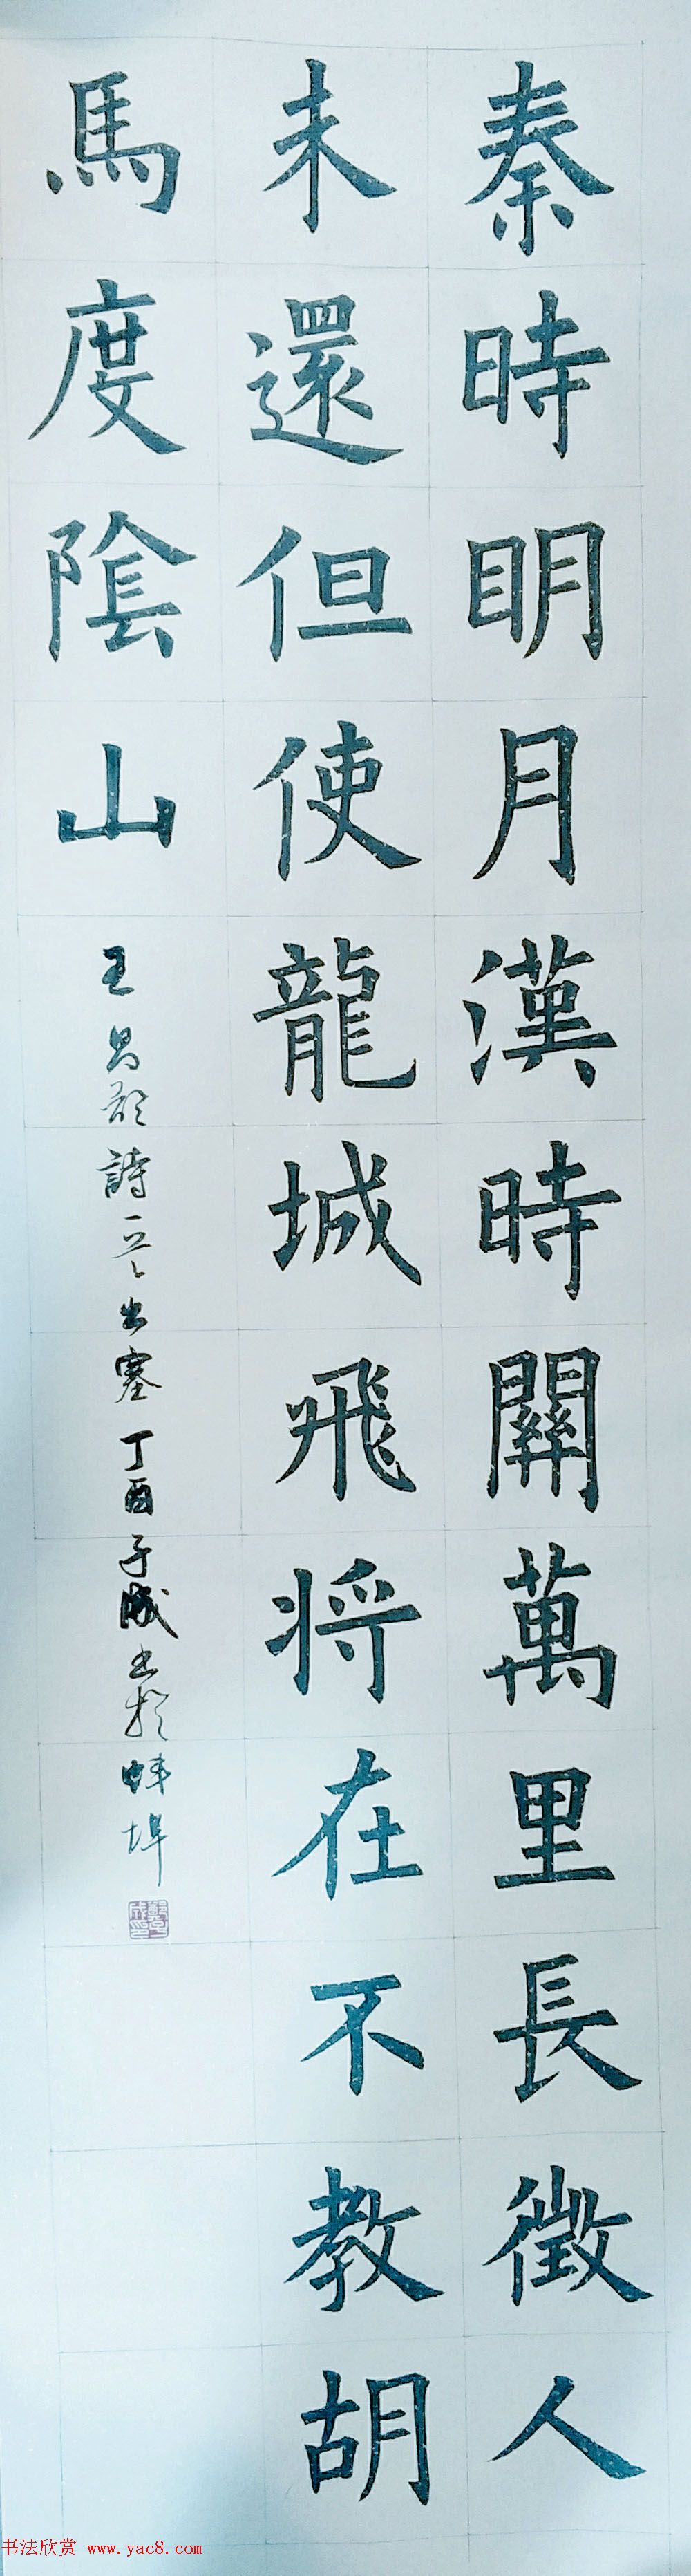 秦時明月漢時關萬里長徵人
未還但使龍城飛将在不教胡
馬度陰山
王昌齡詩一首出塞丁酉子成书於蚌埠
书法欣赏 www.yac8.com